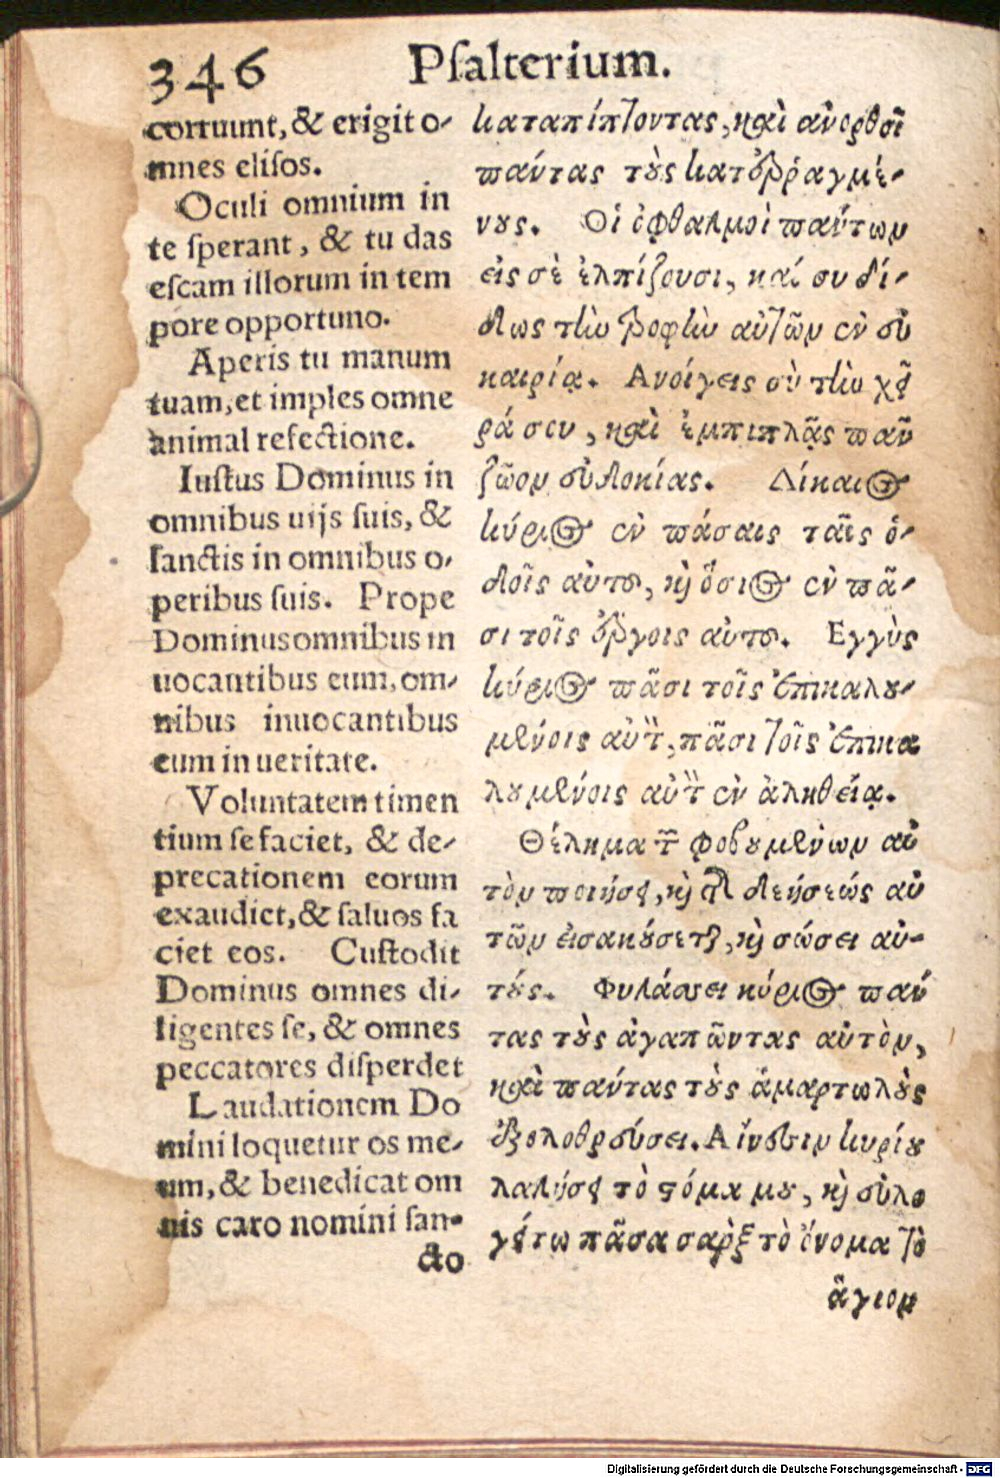 346
Pſalterium.
corruunt, & erigit o-
mnes eliſos.
Oculi omnium in
te ſperant, & tu das
eſcam illorum in tem
pore opportuno.
Aperis tu manum
tuam, et imples omne
animal refectione.
Iuſtus Dominus in
omnibus uijs ſuis, &
ſanctis in omnibus o-
peribus ſuis. Prope
Dominus omnibus in
uocantibus eum, om-
nibus inuocantibus
eum in ueritate.
Voluntatem timen
tium ſe faciet, & de-
precationem eorum
exaudiet, & ſaluos fa
ciet eos. Cuſtodit
Dominus omnes di-
ligentes ſe, & omnes
peccatores diſperdet
Laudationem Do
mini loquetur os me-
um, & benedicat om
nis caro nomini ſan-
cto
καταπίπτοντας, καὶ ἀνορθοῖ
πάντας τοὺς κατεῤῥαγμέ-
νους. Οἱ ὀφθαλμοὶ πάντων
εἰς σὲ ἐλπίζουσι, καί συ δί-
δως τὴν τροφὴν αὐτῶν ἐν εὐ
καιρίᾳ. Ανοίγεις σὺ τὴν χεῖ
ρά σου, καὶ ἐμπιπλᾷς πᾶν
ζῶον εὐδοκίας. Δίκαιος
κύριος ἐν πάσαις ταῖς ὁ-
δοῖς αὐτοῦ, καὶ ὅσιος ἐν πᾶ-
σι τοῖς ἔργοις αὐτοῦ. Εγγὺς
κύριος πᾶσι τοῖς ἐπικαλου-
μένοις αὐτὸν, πᾶσι τοῖς ἐπικα
λουμένοις αὐτὸν ἐν ἀληθείᾳ.
Θέλημα τῶν φοβουμένων αὐ
τὸν ποιήσει, καὶ τῆς δεήσεώς αὐ
τῶν εἰσακούσεται, καὶ σώσει αὐ-
τούς. Φυλάσσει κύριος πάν
τας τοὺς ἀγαπῶντας αὐτὸν,
καὶ πάντας τοὺς ἁμαρτωλοὺς
ἐξολοθρεύσει. Αἴνεσιν κυρίου
λαλήσει τὸ στόμα μου, καὶ εὐλο
γείτω πᾶσα σὰρξ τὸ ὄνομα τὸ
ἅγιον
Digitalisierung gefördert durch die Deutsche Forschungsgemeinschaft - DFG